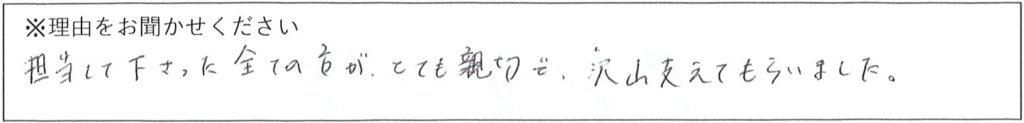 ※理由をお聞かせください
担当して下さった全ての方が、とても親切で、沢山支えてもらいました。